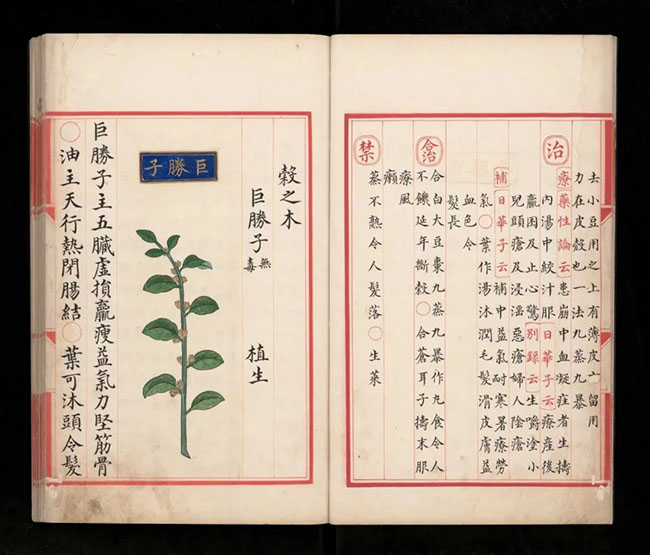 去小豆用之上有薄皮亡留用
力在皮殼也一法九蒸九暴
治
療藥性論云患崩中血凝疰者生擣
內湯中絞汁服日華子云療産後
羸困及止心驚別錄云生嚼塗小
兒頭瘡及浸淫惡瘡婦人陰瘡
補日華子云補中益氣耐寒暑療勞
氣○葉作湯沐潤毛髮滑皮膚益
血色令
髮長
合治
合白大豆棗九蒸九暴作丸食令人
不饑延年斷穀○合蒼耳子擣末服
療風
癩
禁
蒸不熟令人髮落○生菜
穀之木
巨勝子無毒 植生
巨勝子
巨勝子主五臟虛損羸瘦益氣力堅筋骨
○油主天行熱閉腸結○葉可沐頭令髮